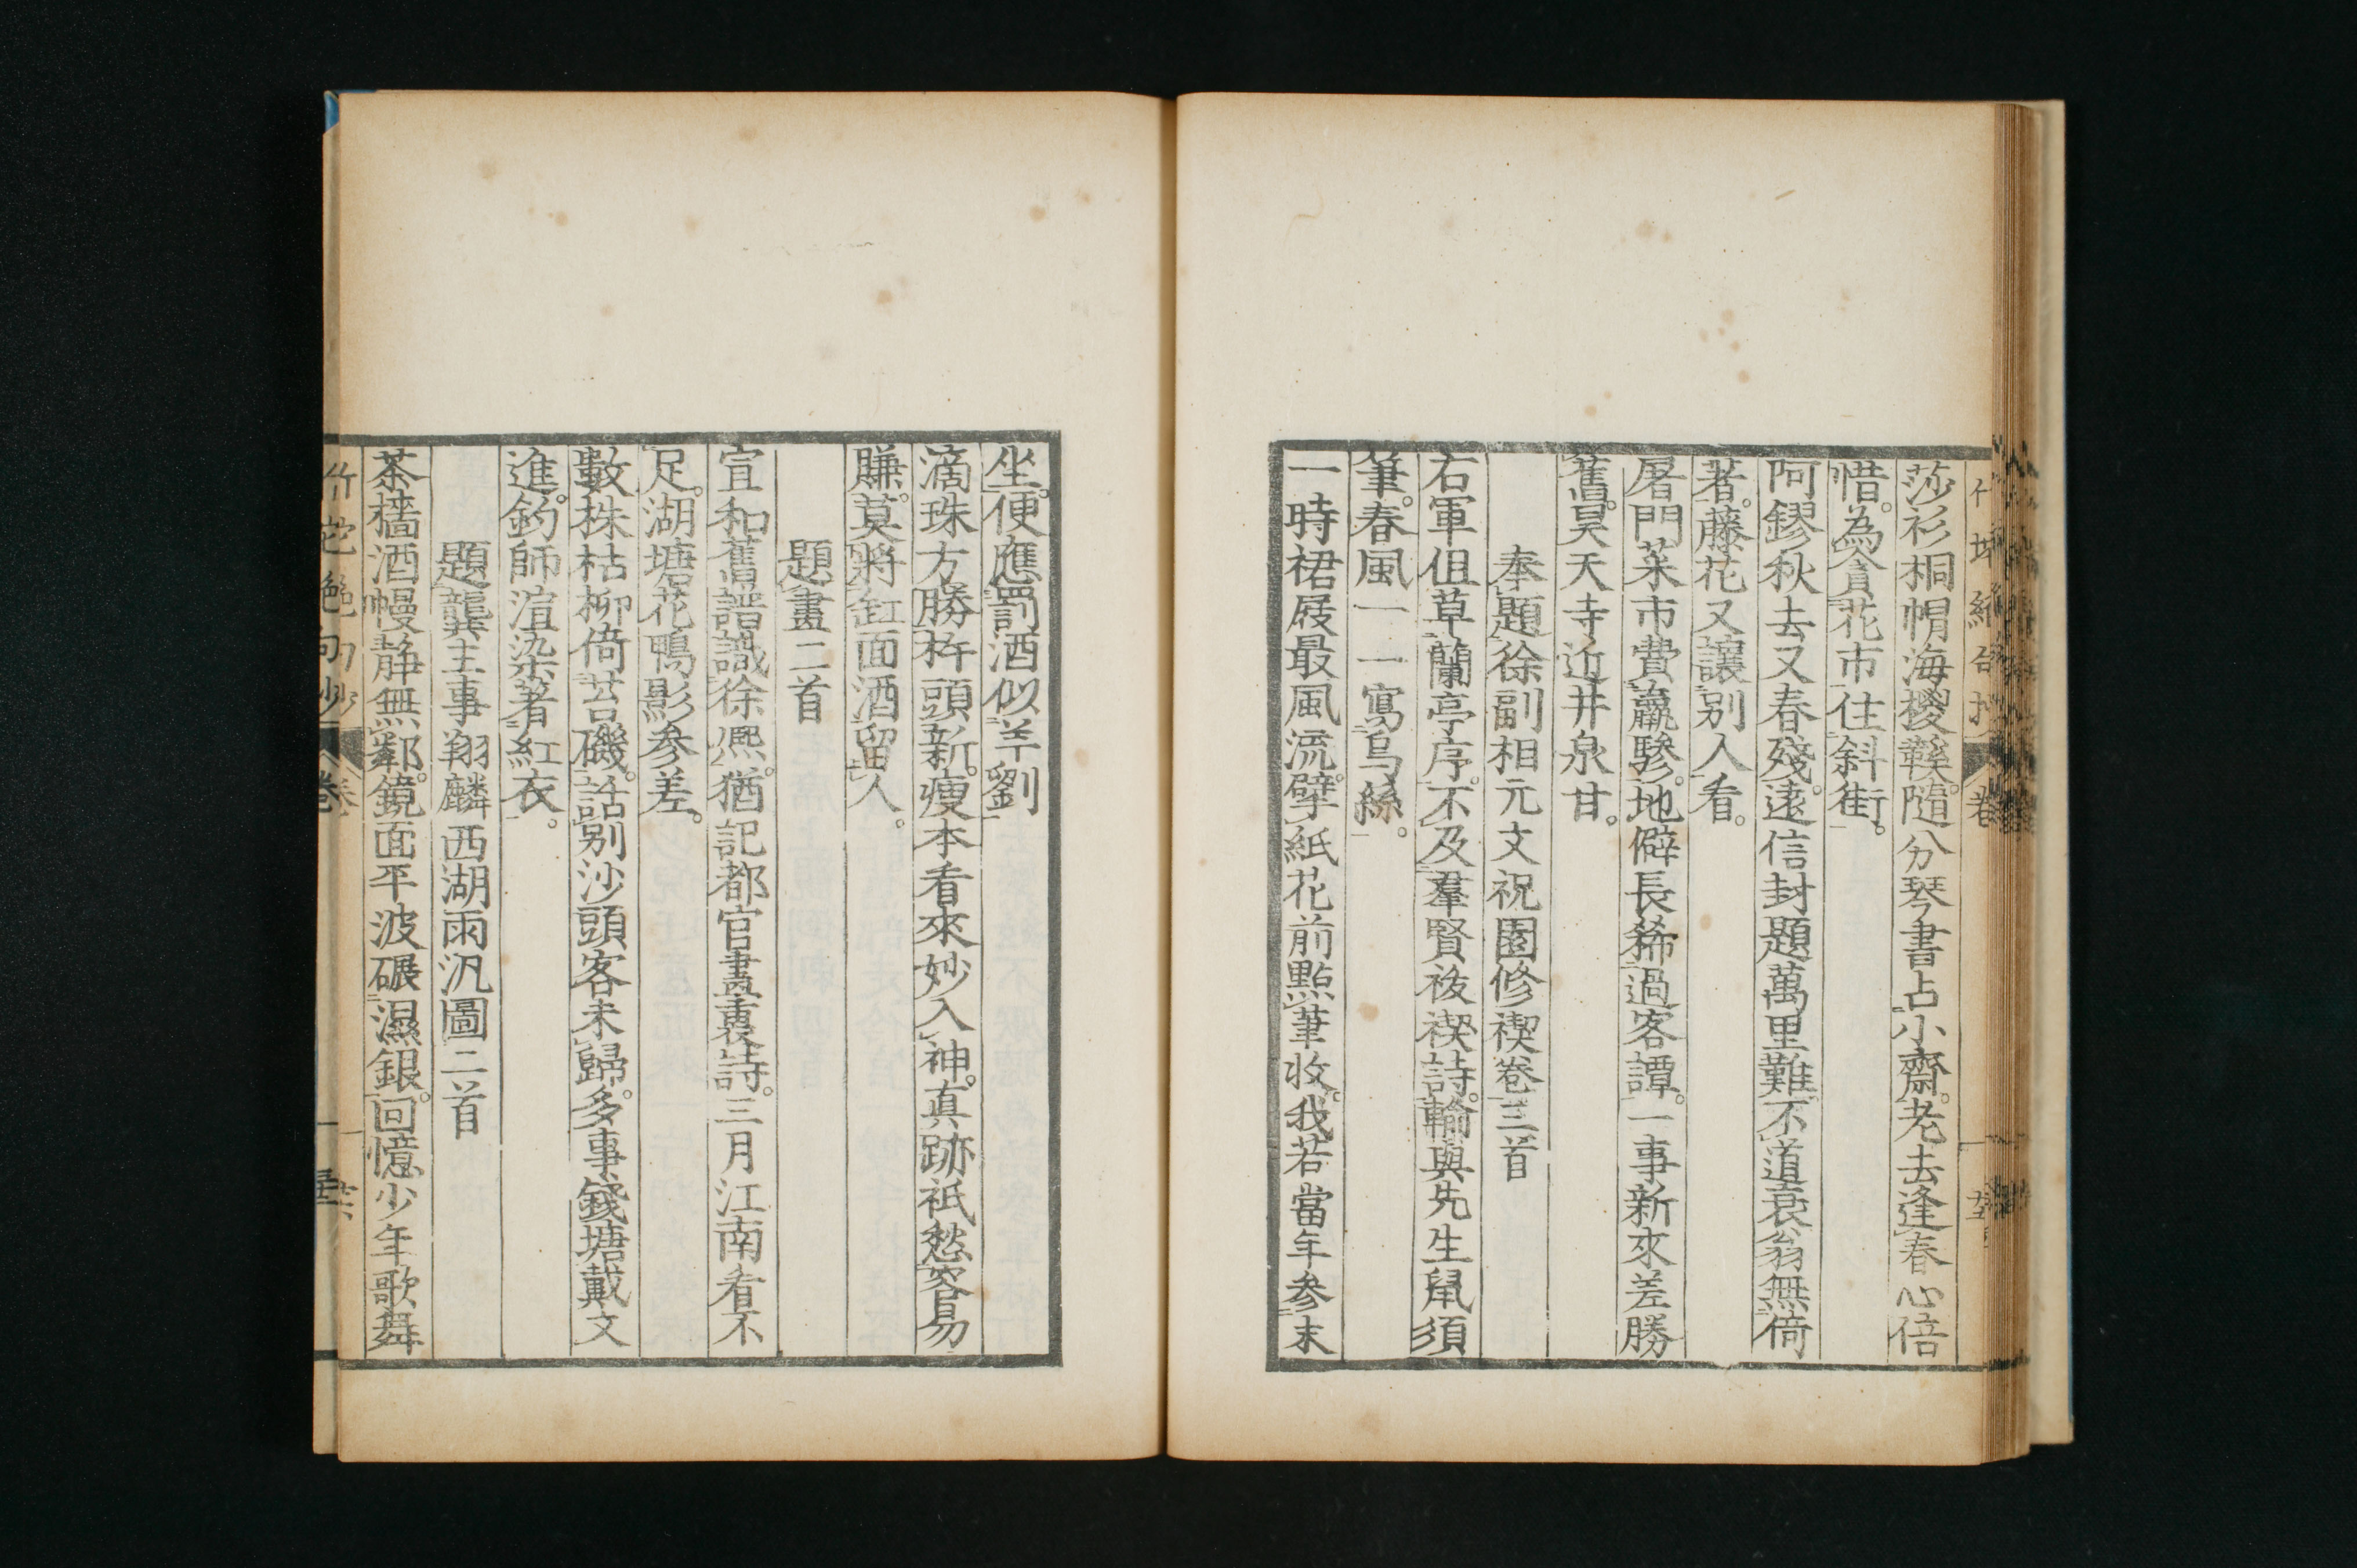 莎衫桐帽海椶鞵。隨分琴書占小齋。老去逢春心倍
惜。為貪花市住斜街。
阿鏐秋去又春殘。遠信封題萬里難。不道衰翁無倚
著。藤花又讓别人看。
屠門菜市費羸驂。地僻長稀過客譚。一事新來差勝
舊。昊天寺近井泉甘。
奉題徐副相元文祝園修禊卷三首
右軍但草蘭亭序。不及羣賢祓禊詩。輸與先生鼠須
筆。春風一一寫烏絲。
一時裙屐最風流。擘紙花前點筆收。我若當年參末
坐。便應罰酒似羊劉
滴珠方勝杵頭新。瘦本看來妙入神。真跡祇愁容易
賺。莫將缸面酒留人。
題畫二首
宣和舊譜識徐熙。猶記都官畫裏詩。三月江南看不
足。湖塘花鴨影參差。
數株枯柳倚苔磯。話别沙頭客未歸。多事錢塘戴文
進。釣師渲染著紅衣。
題龔主事翔麟西湖雨汎圖二首
茶檣酒幔静無鄰。鏡面平波碾濕銀。回憶少年歌舞
竹垞絶句抄 卷